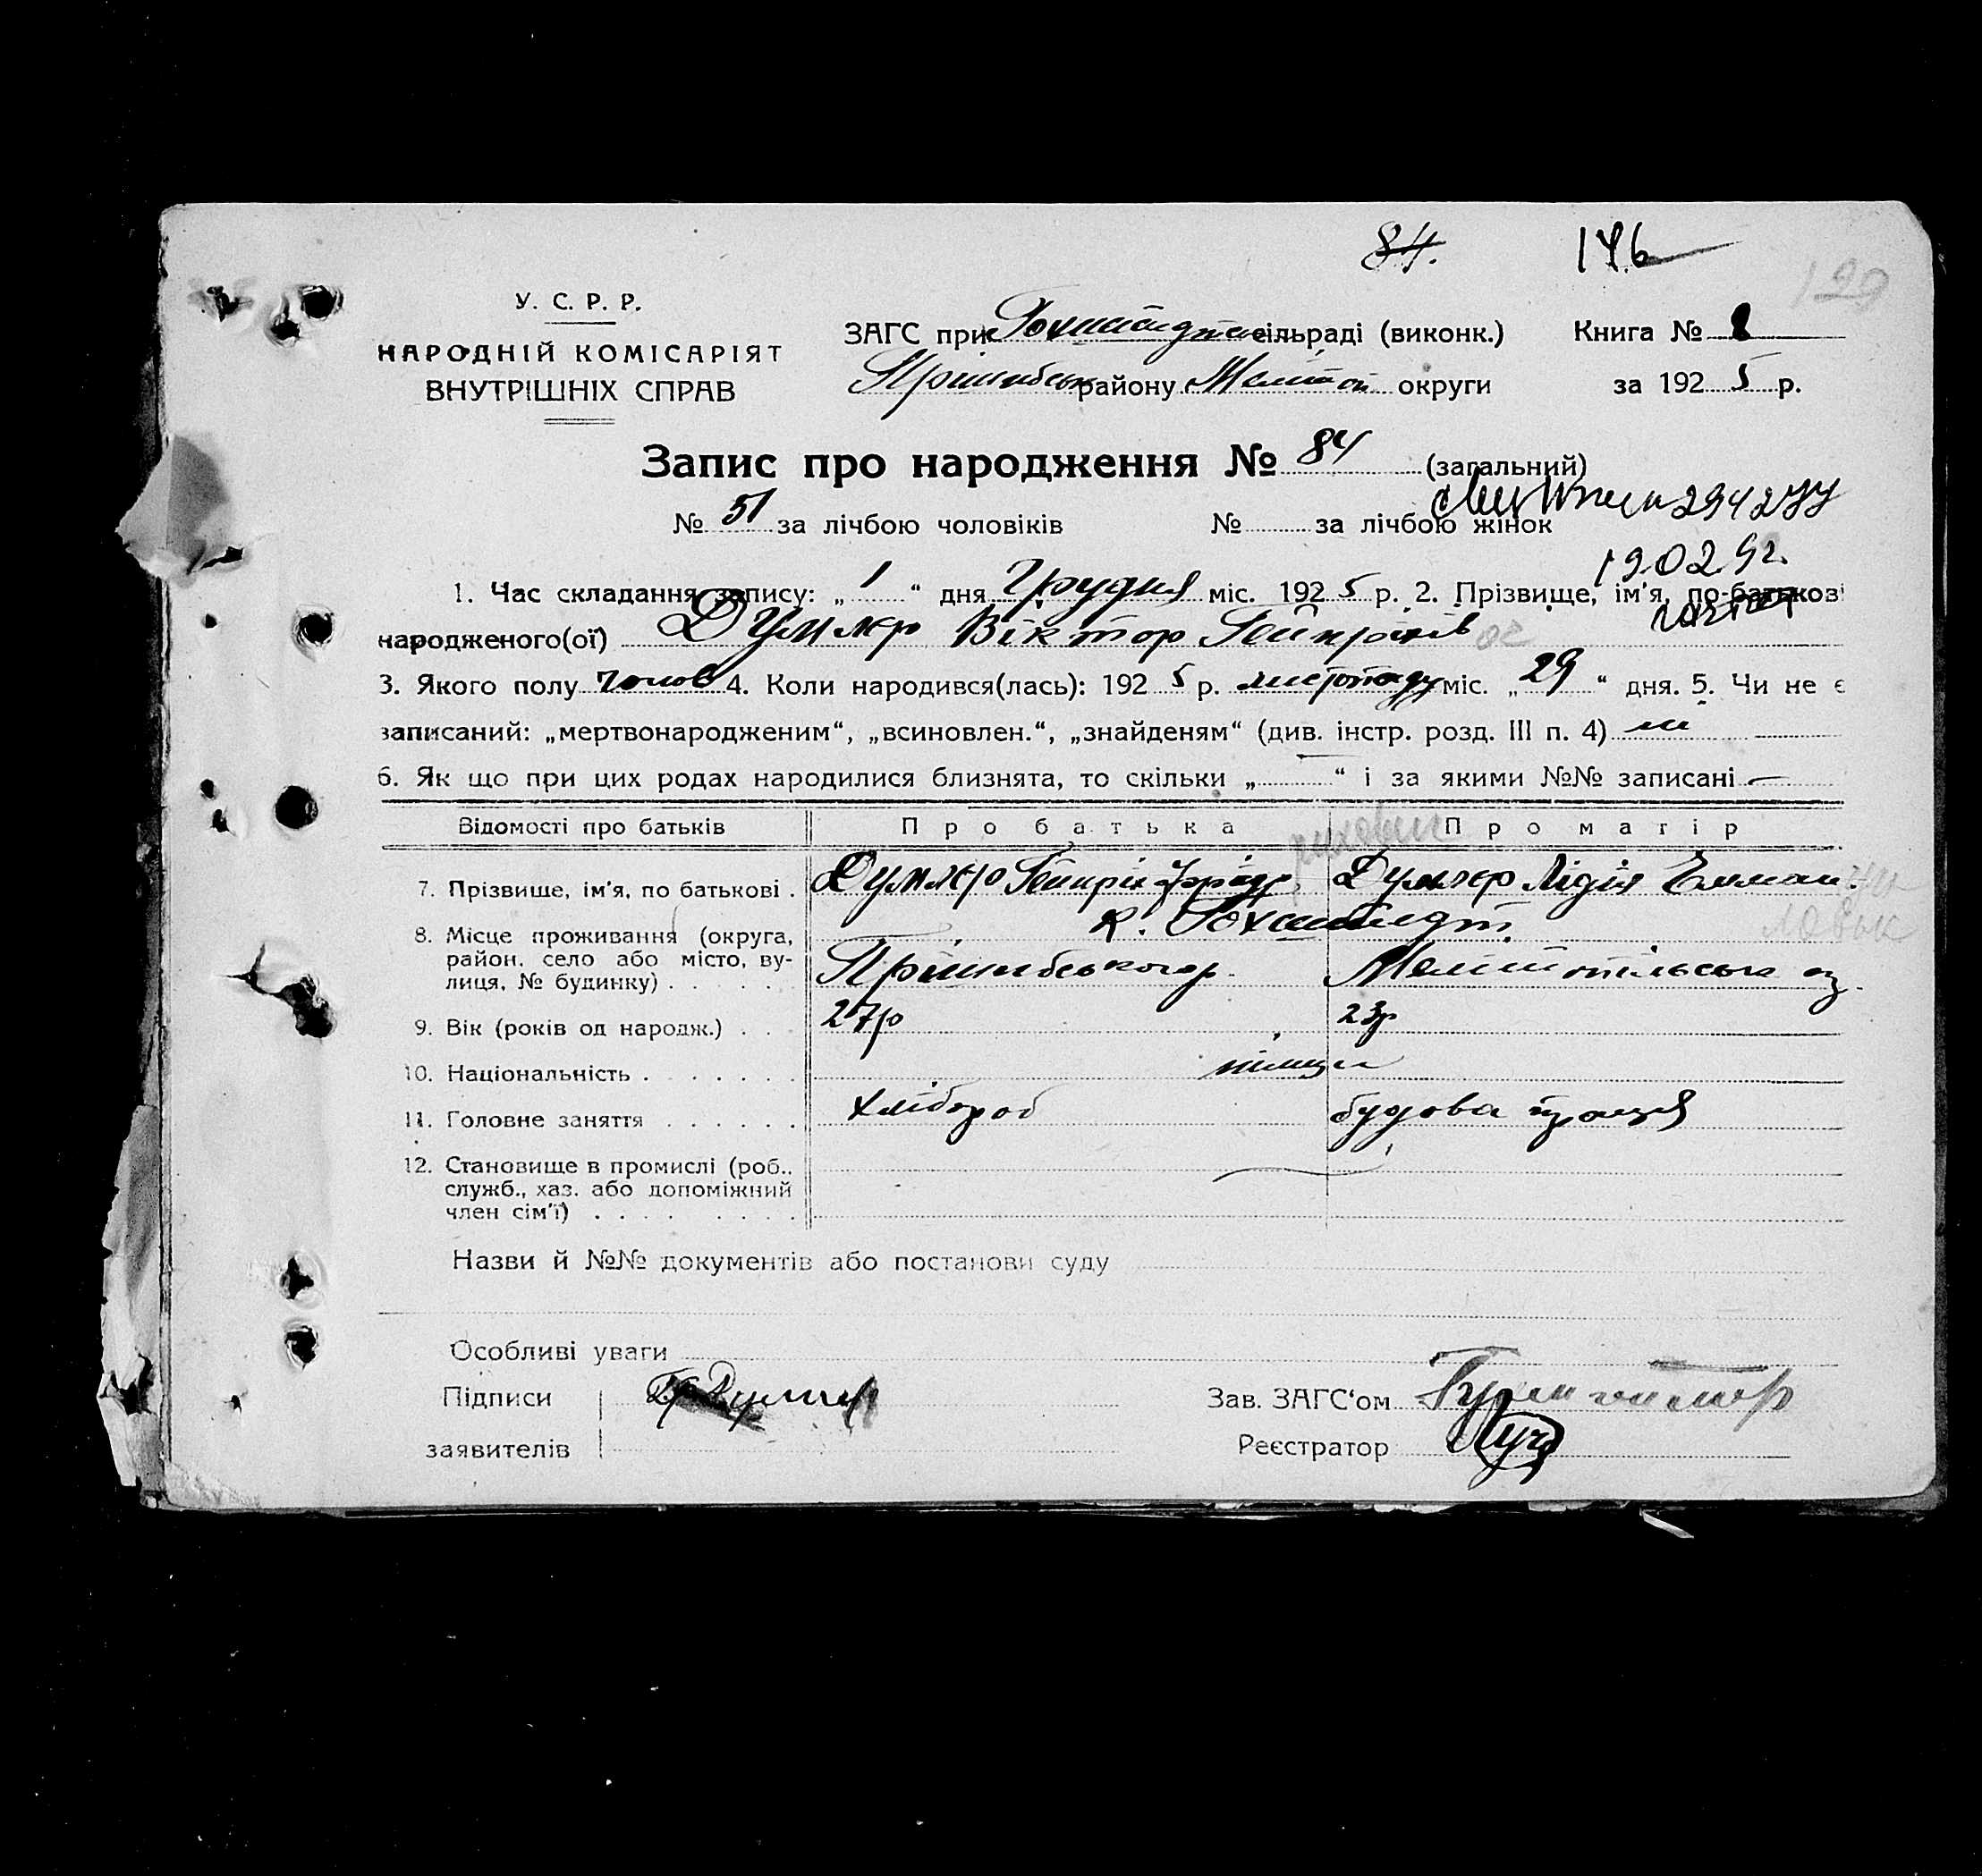 84. 146
129
У. С. Р. Р.
НАРОДНІЙ КОМІСАРІЯТ
ВНУТРІШНІХ СПРАВ
ЗАГС при Гохштадт сільраді (виконк.)
Пришибськ району Мелітоп округи
Книга № 8
за 1925 р.
Запис про народження № 84 (загальний)
№ 51 за лічбою чоловіків № за лічбою жінок
294277
1. Час складання запису: „ 1 “ дня Грудня міс. 1925 р. 2. Прізвище, ім'я, по-батькові
народженого(ої) Думлер Віктор Гейнріхів
3. Якого полу чолов 4. Коли народився(лась): 1925 р. листопаду міс. „ 29 “ дня. 5. Чи не є
записаний: „мертвонародженим“, „всиновлен.“, „знайденям“ (див. інстр. розд. III п. 4) ні
6. Як що при цих родах народилися близнята, то скільки „ “ і за якими №№ записані —
Відомості про батьків Про батька Про матір
7. Прізвище, ім'я, по батькові . Думлер Гейнріх Фрідр. Думлер Лідія Емман.
8. Місце проживання (округа, район, село або місто, вулиця, № будинку) к. Гохштадт
Пришибського р. Мелітопільська ок.
9. Вік (років од народж.) 27р 23р
10. Національність німці
11. Головне заняття хлібороб будова праця
12. Становище в промислі (роб., служб., хаз. або допоміжний член сім'ї)
Назви й №№ документів або постанови суду
Особливі уваги
Підписи заявителів Гр Думлер
Зав. ЗАГС‘ом
Реєстратор